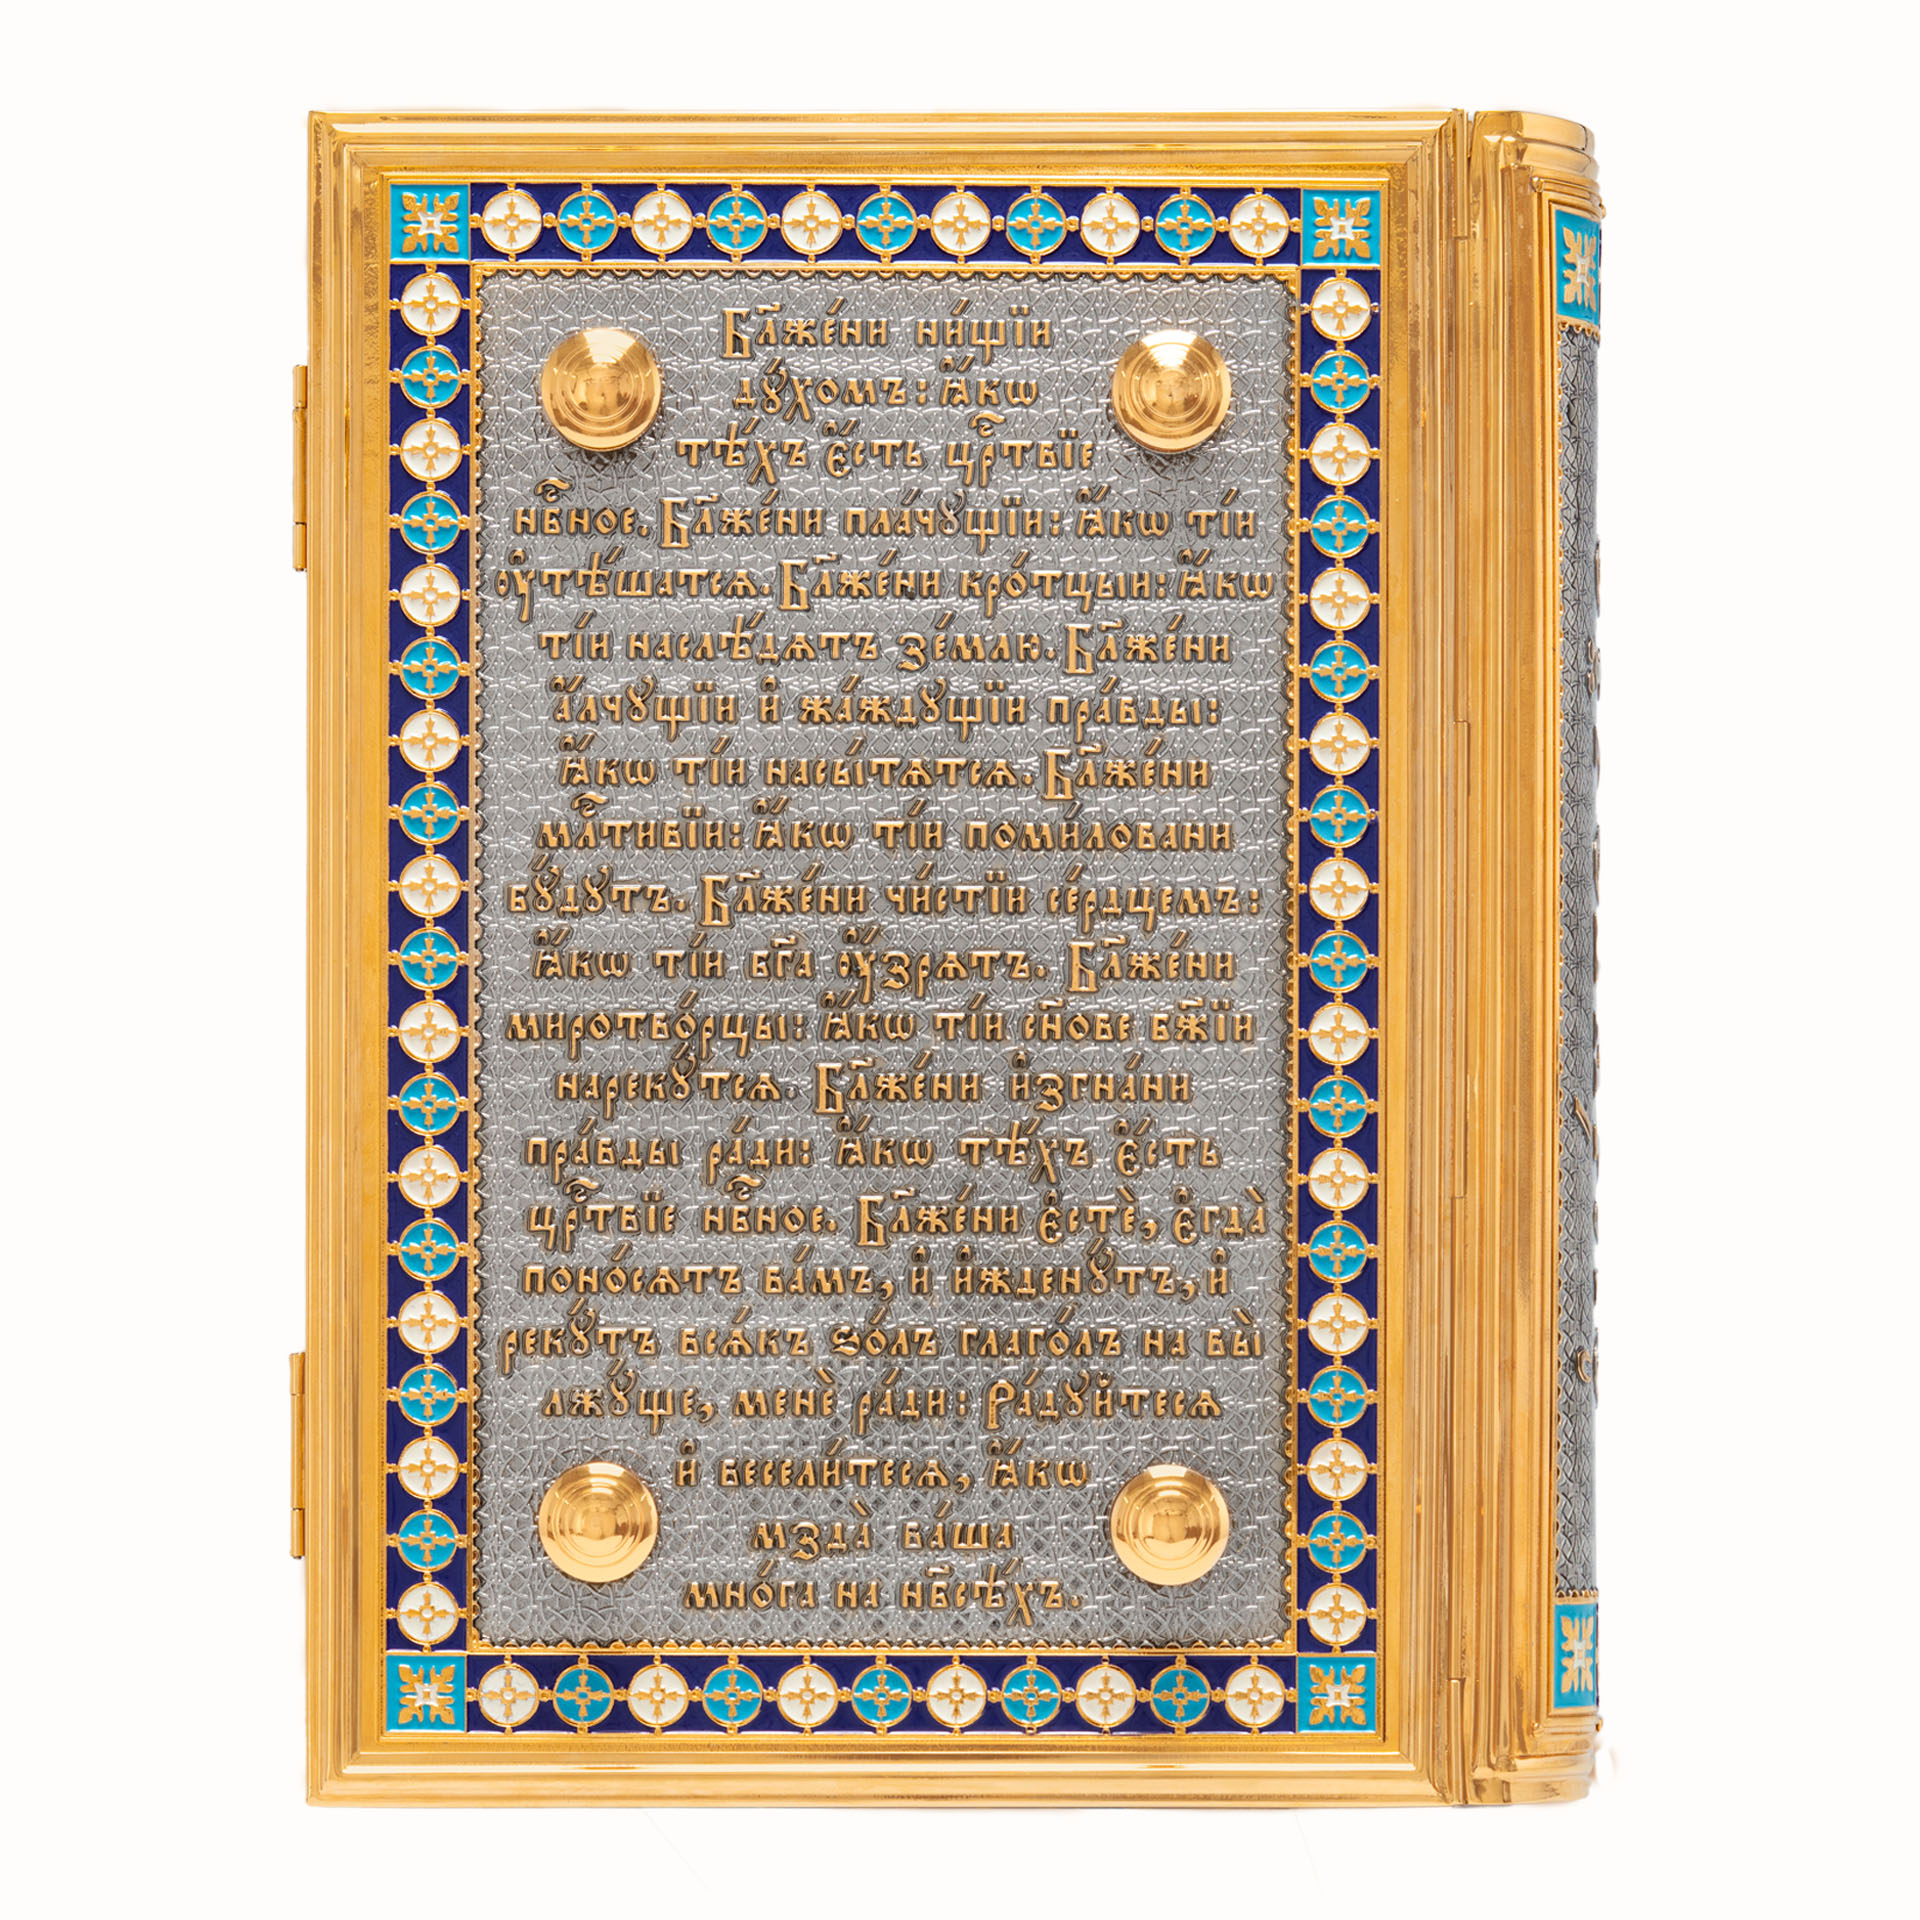 Бл҃же́ни ни́щїи
дꙋ́хомъ: ꙗ҆́кѡ
тѣ́хъ є҆́сть црⷭ҇твїе
нбⷭ҇ное. Бл҃же́ни пла́чꙋщїи: ꙗ҆́кѡ ті́и
ᲂу҆тѣ́шатсѧ. Бл҃же́ни кро́тцыи: ꙗ҆́кѡ
ті́и наслѣ́дѧтъ зе́млю. Бл҃же́ни
а҆́лчꙋщїи и҆ жа́ждꙋщїи пра́вды:
ꙗ҆́кѡ ті́и насы́тѧтсѧ. Бл҃же́ни
млⷭ҇тивїи: ꙗ҆́кѡ ті́и поми́ловани
бꙋ́дꙋтъ. Бл҃же́ни чи́стїи се́рдцемъ:
ꙗ҆́кѡ ті́и бг҃а ᲂу҆́зрѧтъ. Бл҃же́ни
миротво́рцы: ꙗ҆́кѡ ті́и сн҃ове бж҃їи
нарекꙋ́тсѧ. Бл҃же́ни и҆згна́ни
пра́вды ра́ди: ꙗ҆́кѡ тѣ́хъ є҆́сть
црⷭ҇твїе нбⷭ҇ное. Бл҃же́ни є҆стѐ, є҆гда̀
поно́сѧтъ ва́мъ, и҆ и҆жденꙋ́тъ, и҆
рекꙋ́тъ всѧ́къ ѕо́лъ глаго́лъ на вы̀
лжꙋ́ще, менѐ ра́ди: Ра́дꙋйтесѧ
и҆ весели́тесѧ, ꙗ҆́кѡ
мзда̀ ва́ша
мно́га на нб҃сѣ́хъ.